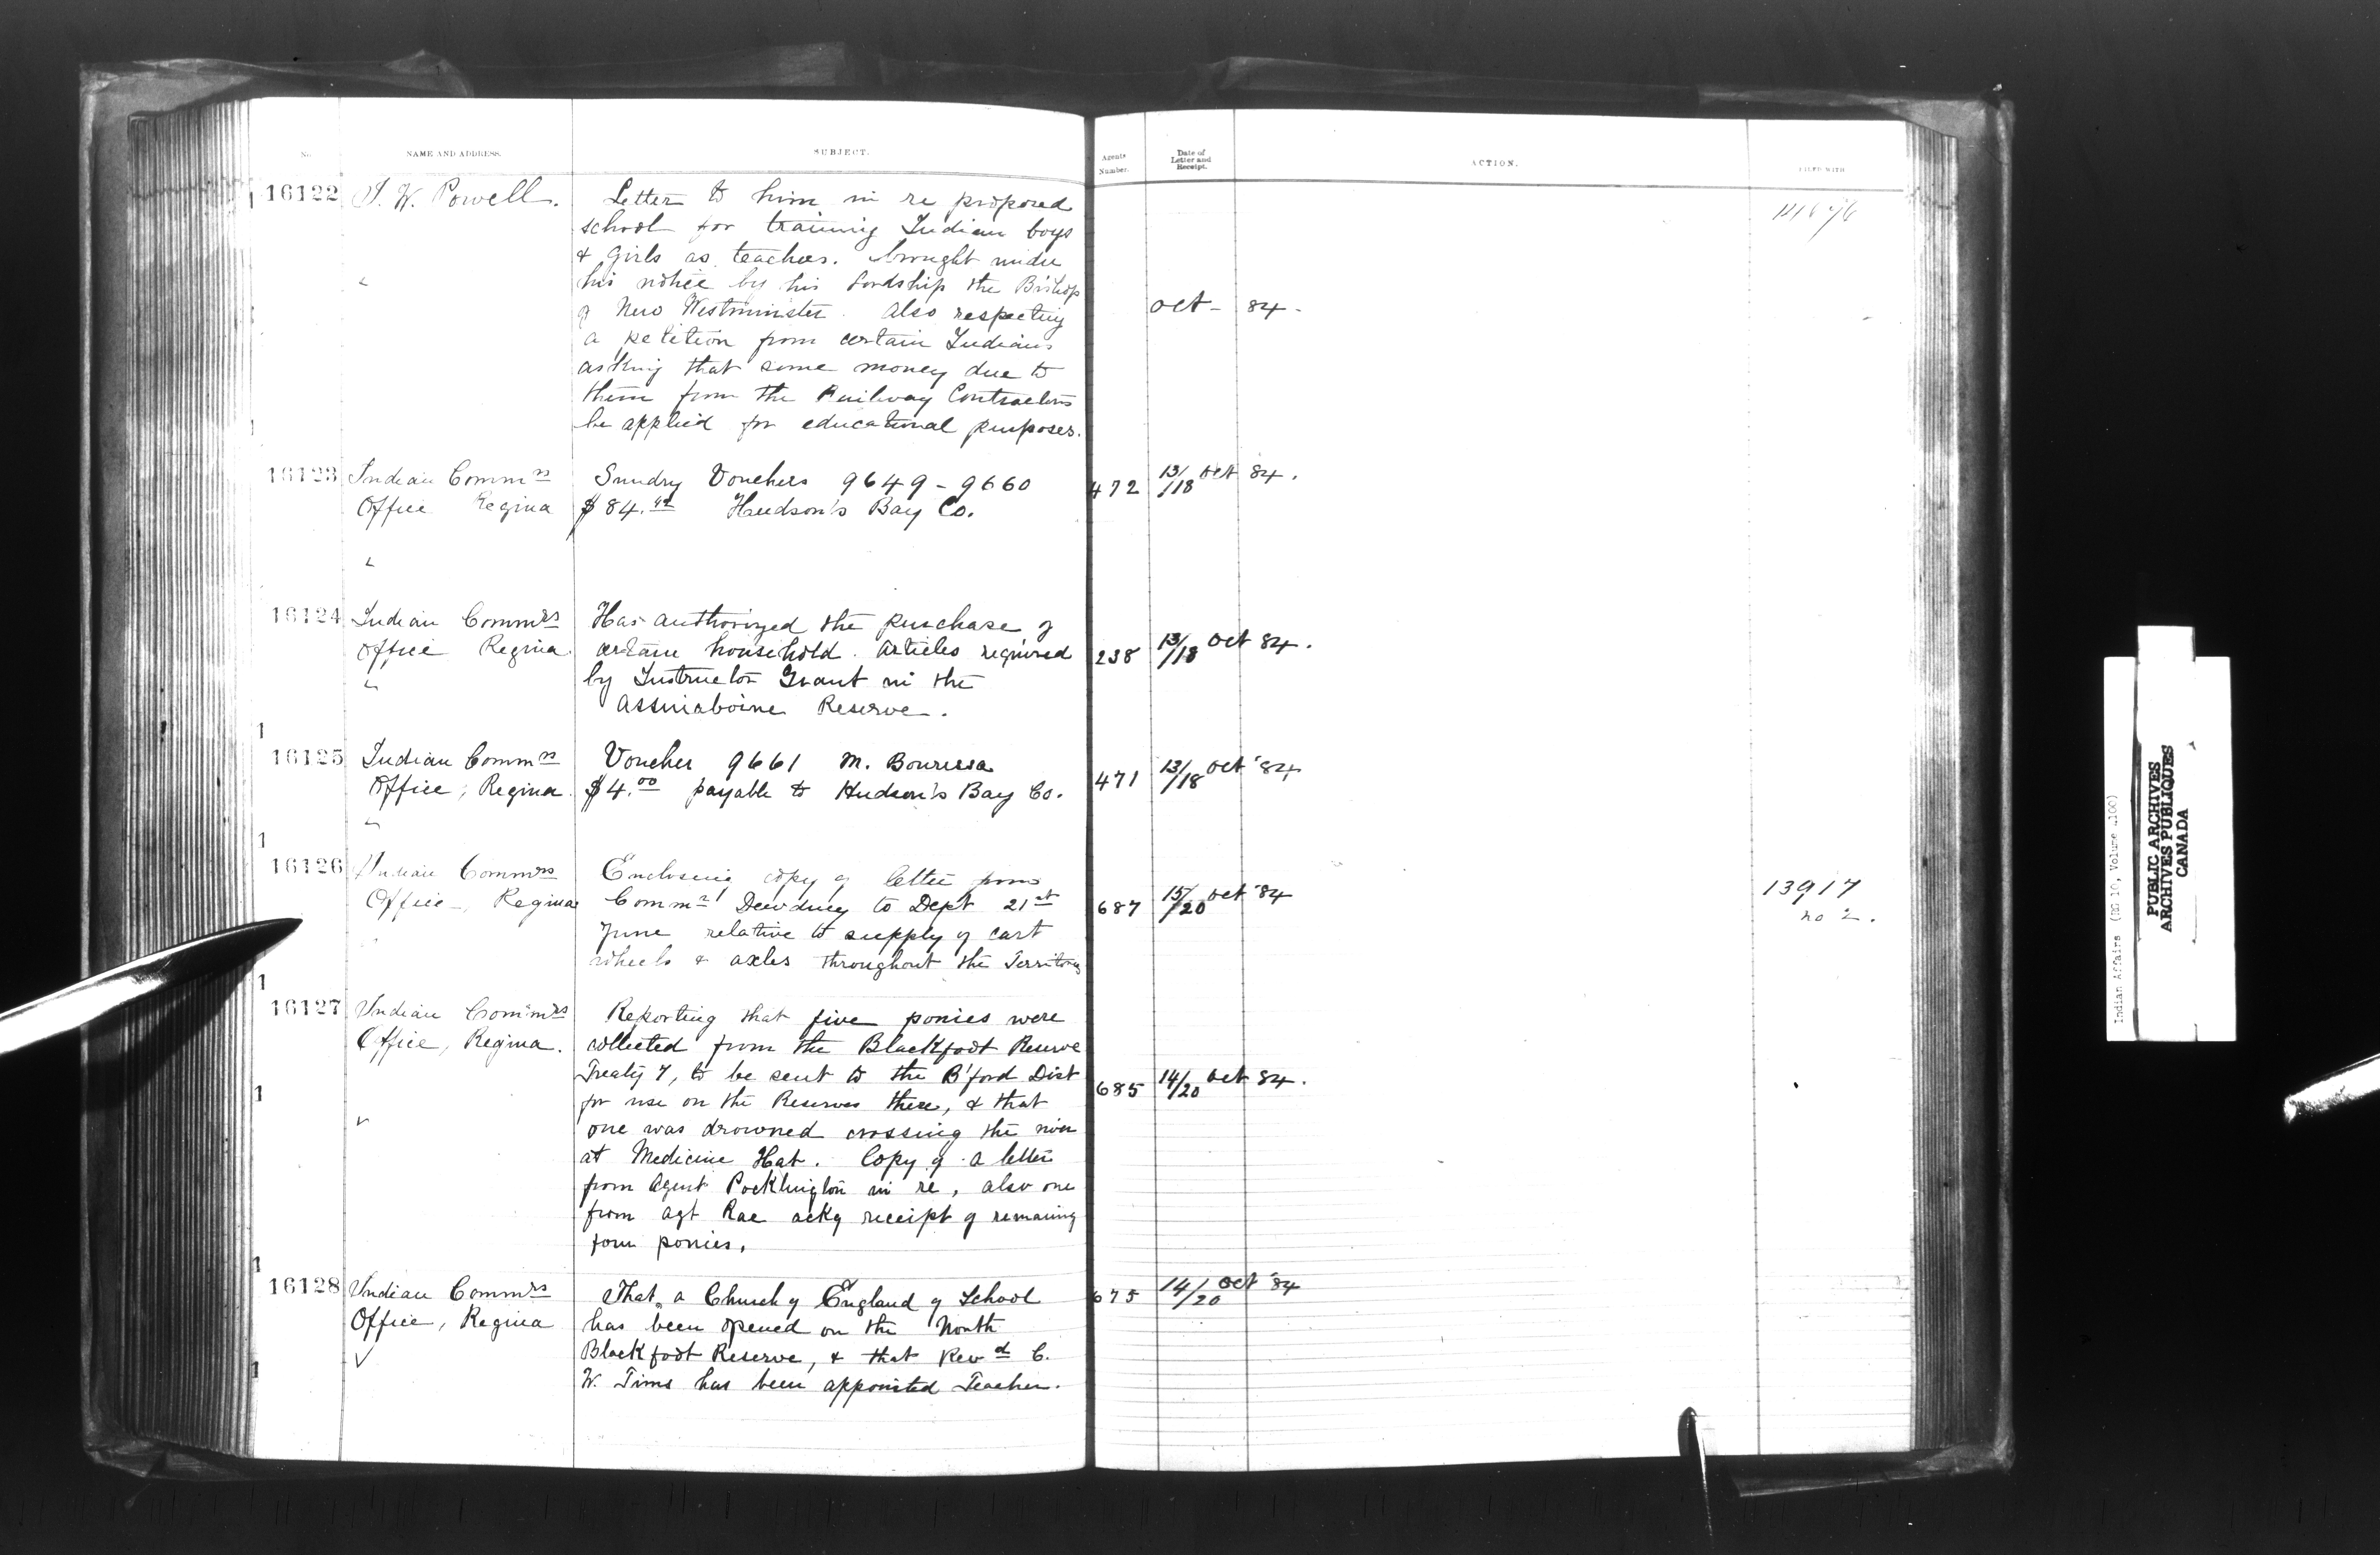 No. NAME AND ADDRESS. SUBJECT. Agents Number. Date of Letter and Receipt. ACTION. FILED WITH
16122 I. W. Powell. Letter to him in re proposed
school for training Indian boys
& girls as teachers. brought under
his notice by his Lordship the Bishop
of New Westminster. Also respecting Oct - 84.
a petition from certain Indians
asking that some money due to
them from the Railway Contractors
be applied for educational purposes.
16123 Indian Commrs Sundry Vouchers 9649 - 9660 472 13/18 Oct 84.
Office Regina $84.42 Hudson's Bay Co.
16124 Indian Commrs Has authorized the purchase of
Office Regina certain household articles required 238 13/18 Oct 84.
by Instructor Grant in the
Assiniaboine Reserve.
16125 Indian Commrs Voucher 9661 M. Bourassa 471 13/18 Oct '84
Office, Regina. $4.00 payable to Hudson's Bay Co.
16126 Indian Commrs Enclosing copy of letter from 13917
Office, Regina Commr Dewdney to Dept 21st 687 15/20 Oct '84 no 2.
June relative to supply of cart
wheels & axles throughout the Territories
16127 Indian Commrs Reporting that five ponies were
Office, Regina. collected from the Blackfoot Reserve
Treaty 7, to be sent to the B'ford Dist 685 14/20 Oct 84.
for use on the Reserves there, & that
one was drowned crossing the river
at Medicine Hat. Copy of a letter
from Agent Pocklington in re, also one
from Agt Rae ackg receipt of remaining
four ponies.
16128 Indian Commrs That a Church of England of School 675 14/20 Oct '84
Office, Regina has been opened on the North
Blackfoot Reserve, & that Revd C.
W. Tims has been appointed Teacher.
Indian Affairs (RG 10, Volume
PUBLIC ARCHIVES
ARCHIVES PUBLIQUES
CANADA